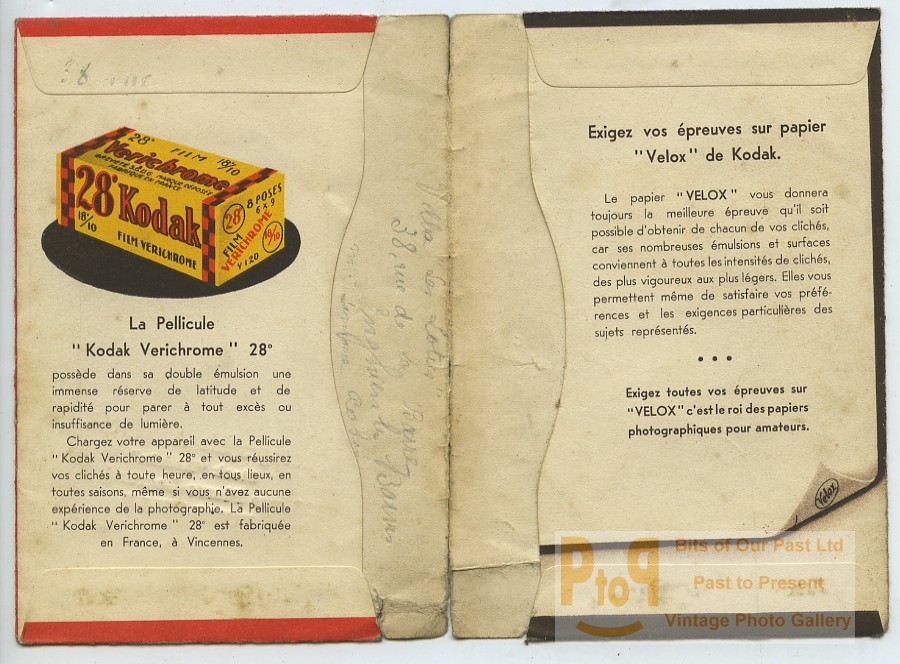 38
28°
FILM
18°/10
Verichrome
BREVETÉ S.G.D.G. MARQUE DÉPOSÉE
FABRIQUÉ EN FRANCE
28° Kodak
18°/10
FILM VERICHROME
28°
8 POSES
6 x 9
FILM
VERICHROME
V 120
18°/10
La Pellicule
"Kodak Verichrome" 28°
possède dans sa double émulsion une
immense réserve de latitude et de
rapidité pour parer à tout excès ou
insuffisance de lumière.
Chargez votre appareil avec la Pellicule
"Kodak Verichrome" 28° et vous réussirez
vos clichés à toute heure, en tous lieux, en
toutes saisons, même si vous n'avez aucune
expérience de la photographie. La Pellicule
"Kodak Verichrome" 28° est fabriquée
en France, à Vincennes.
Villa
38, rue de
Exigez vos épreuves sur papier
"Velox" de Kodak.
Le papier "VELOX" vous donnera
toujours la meilleure épreuve qu'il soit
possible d'obtenir de chacun de vos clichés,
car ses nombreuses émulsions et surfaces
conviennent à toutes les intensités de clichés,
des plus vigoureux aux plus légers. Elles vous
permettent même de satisfaire vos préfé-
rences et les exigences particulières des
sujets représentés.
• • •
Exigez toutes vos épreuves sur
"VELOX" c'est le roi des papiers
photographiques pour amateurs.
Velox
PtoP
Bits of Our Past Ltd
Past to Present
Vintage Photo Gallery